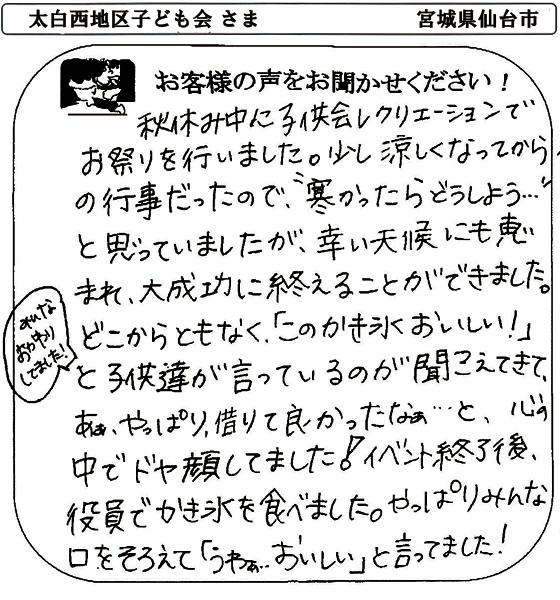 太白西地区子ども会 さま
宮城県仙台市
お客様の声をお聞かせください！
秋休み中に子供会レクリエーションで
お祭りを行いました。少し涼しくなってから
の行事だったので、“寒かったらどうしよう…”
と思っていましたが、幸い天候にも恵
まれ、大成功に終えることができました。
どこからともなく、「このかき氷おいしい！」
と子供達が言っているのが聞こえてきて、
あぁ、やっぱり、借りて良かったなぁ…と、心の
中でドヤ顔してました！イベント終了後、
役員でかき氷を食べました。やっぱりみんな
口をそろえて「うわぁ…おいしい」と言ってました！
みんな
おかわり
してました！